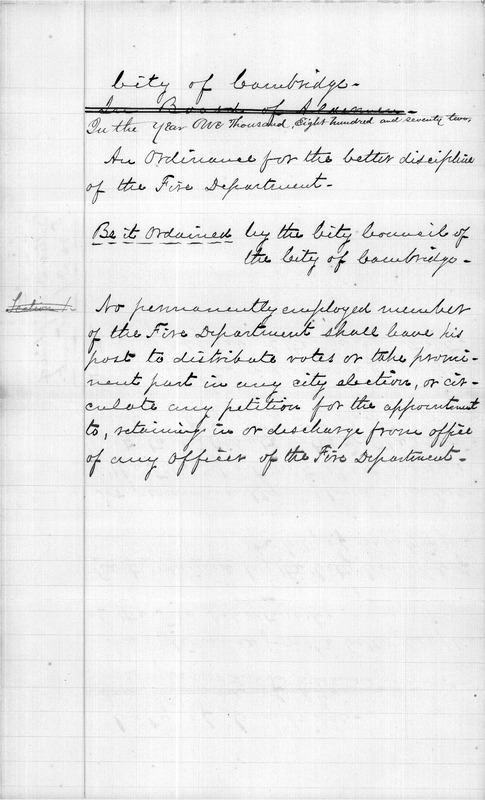 City of Cambridge-
In Board of Aldermen-
In the Year One Thousand, Eight hundred and seventy two,
An Ordinance for the better discipline
of the Fire Department-
Be it Ordained by the City Council of
the City of Cambridge-
Section 1. No permanently employed member
of the Fire Department shall leave his
post to distribute votes or take promi-
nent part in any city election, or cir-
culate any petition for the appointment
to, retaining in or discharge from office
of any Officer of the Fire Department-